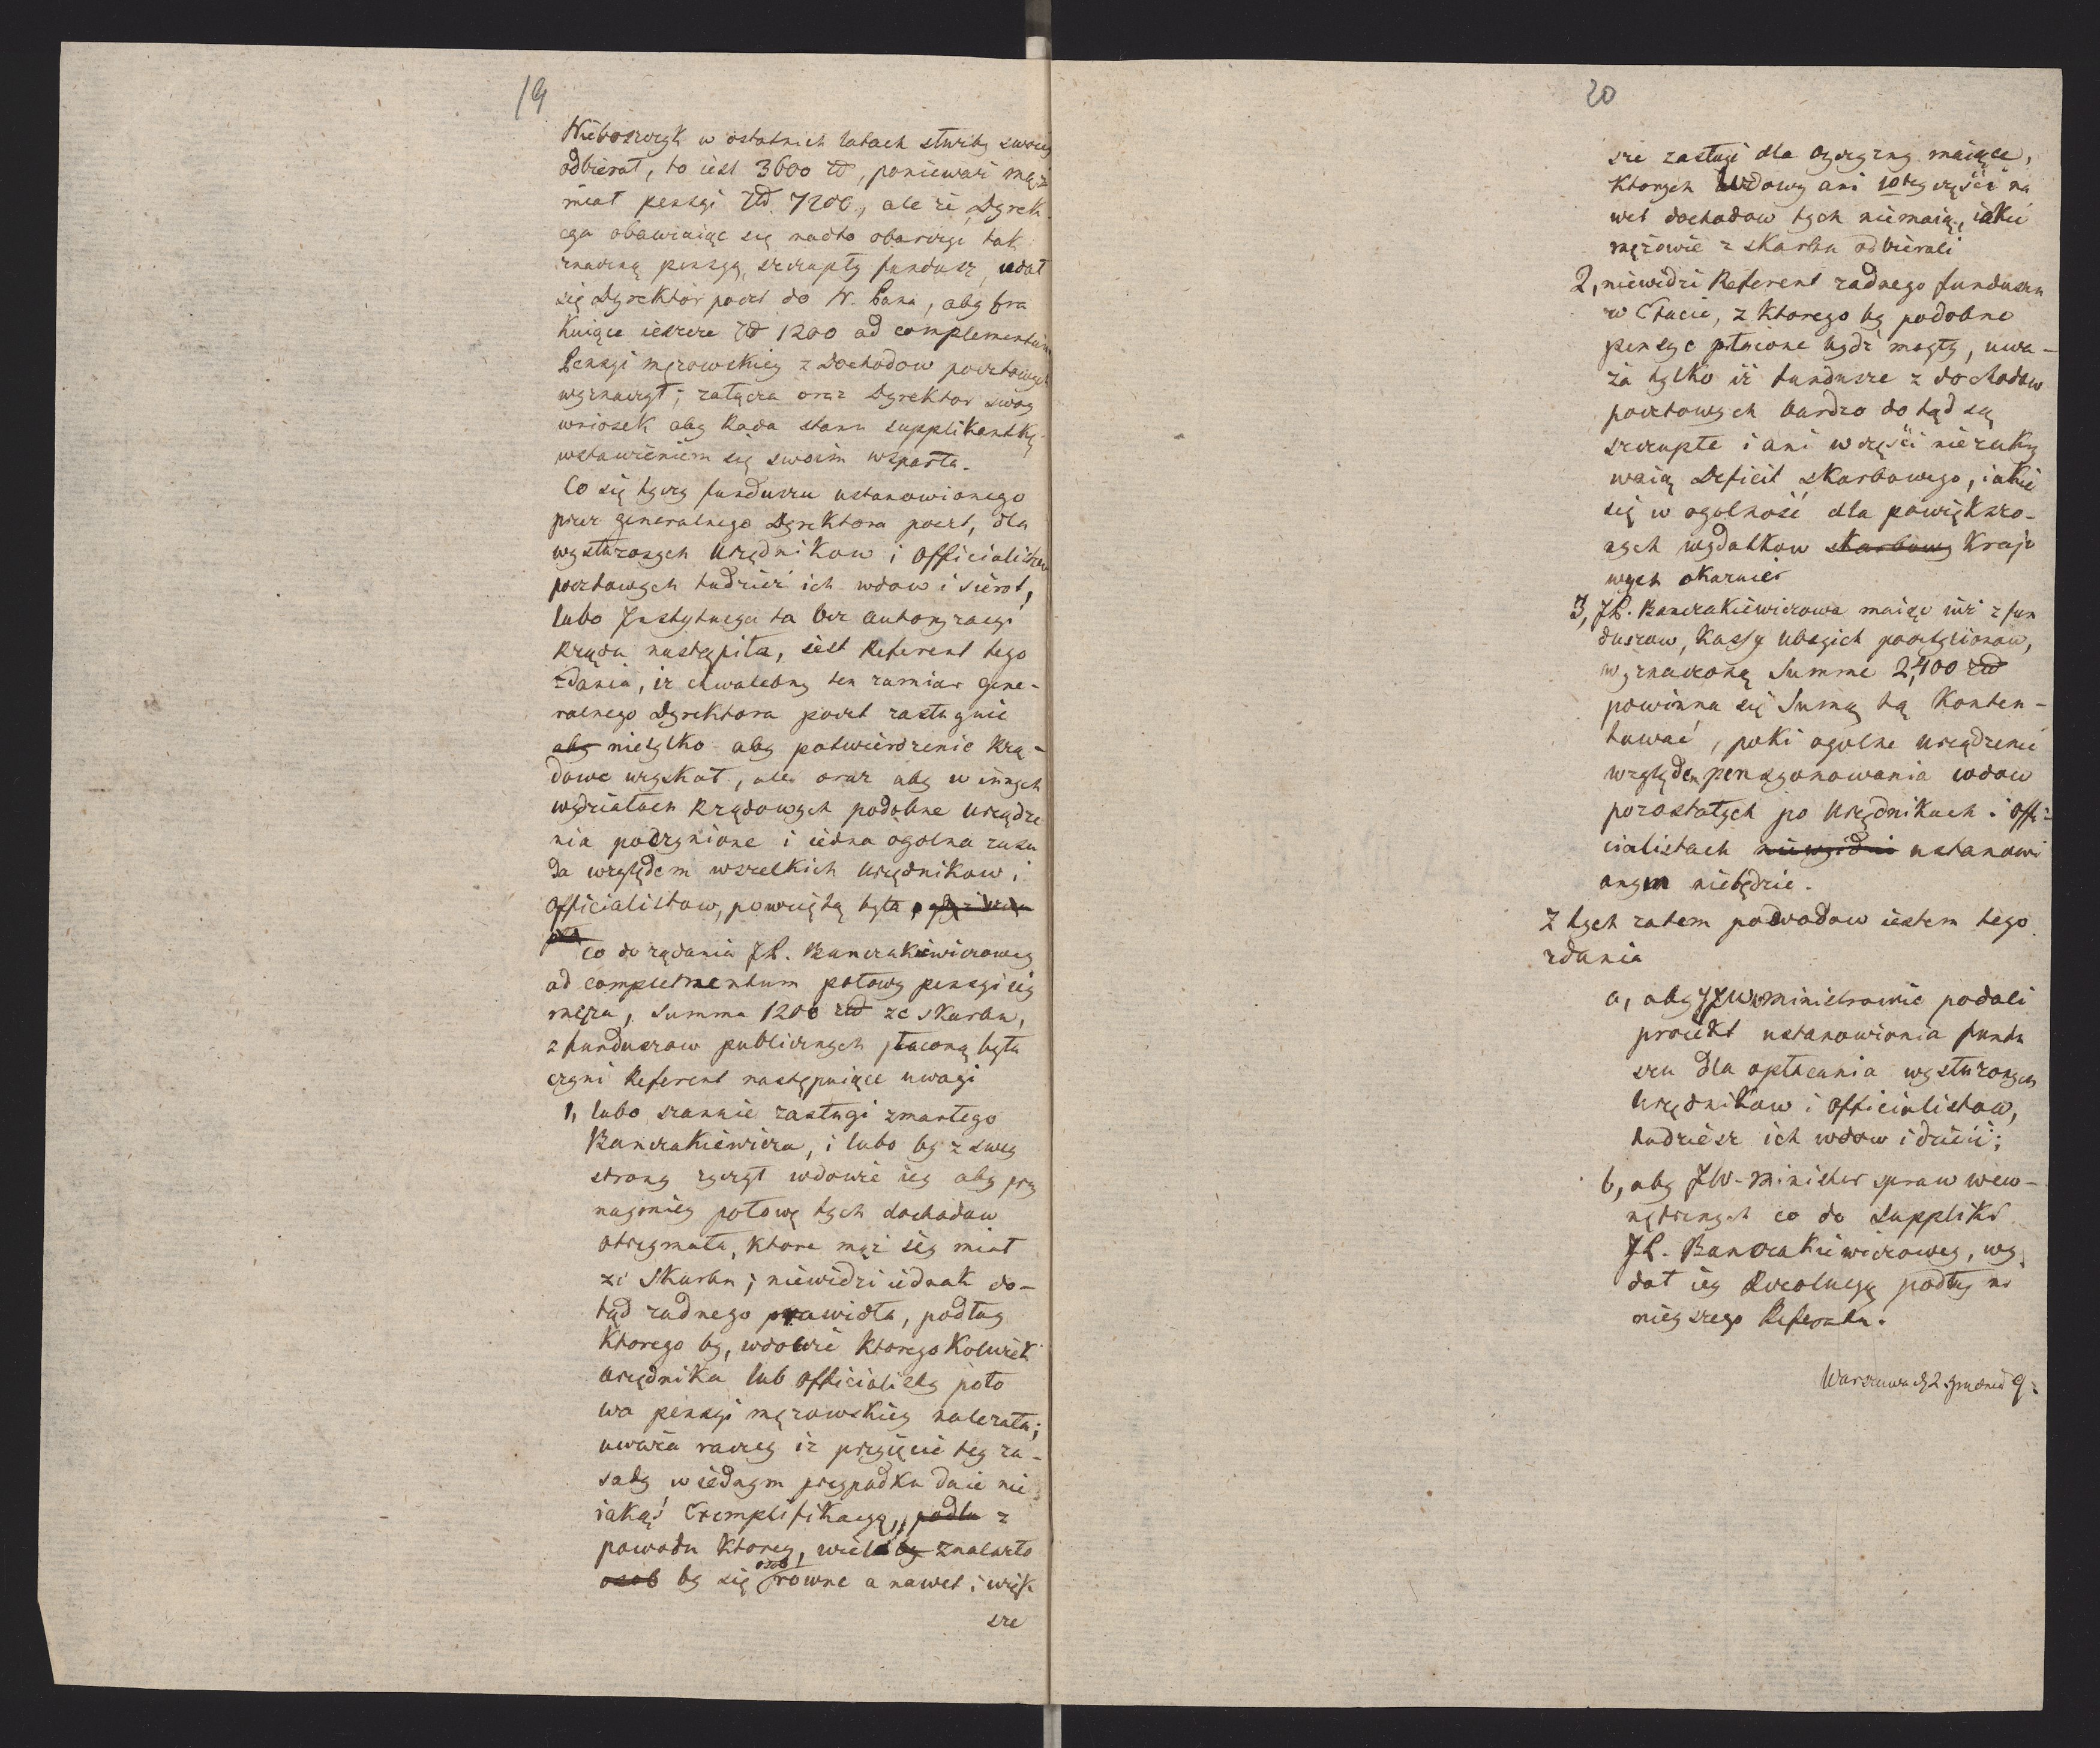 19
Nieboszczyk w ostatnich latach służby swoiey
odbierał, to iest 3600 zł, ponieważ mąż
miał pensyi Złł. 7200, ale że Dyrek
cya obawiaiąc się nadto obarczyć tak
znaczną pensyą, szczupły fundusz, udał
się Dyrektor poczt do N. Pana, aby bra
kuiące ieszcze Zł 1200 ad complementum
Pensyi mężowskiey z Dochodow pocztowych
wyznaczył; załącza oraz Dyrektor swoy
wniosek aby Rada stanu supplikantkę
wstawieniem się swoim wsparła.
Co się tyczy funduszu ustanowionego
przez generalnego Dyrektora poczt, dla
wysłużonych Urzędnikow i Officialistow
pocztowych tudzież ich wdow i sierot,
lubo Instytucya ta bez autoryzacyi
Rządu nastąpiła, iest Referent tego
zdania, iż chwalebny ten zamiar gene-
ralnego Dyrektora poczt zasługuie
aby nietylko aby potwierdzenie Rzą-
dowe uzyskał, ale oraz aby w innych
wydziałach Rządowych podobne Urządze
nia poczynione i iedna ogolna zasa
da względem wszelkich Urzędnikow i
Officialistow, powziętą była
Co do żądania JP. Banczakiewiczowey
ad complementum połowy pensyi iey
męża, Summa 1200 złł ze skarbu,
z funduszow publicznych płaconą była
czyni Referent następuiące uwagi
1, lubo szanuie zasługi zmarłego
Banczakiewicza, i lubo by z swey
strony życzył wdowie iey aby przy
naymniey połowę tych dochodow
otrzymała, ktore mąż iey miał
ze Skarbu; niewidzi iednak do-
tąd żadnego prawidła, podług
ktorego by, wdowie ktoregokolwiek
Urzędnika lub Officialisty poło
wa pensyi mężowskiey należała;
uważa raczey iż przyięcie tey za-
sady w iednym przypadku daie nie
iakąś Exemplifikacyą, podłu z
powodu ktorey, wiele by znalazło
osob by się osob rowne a nawet i więk
sze
20
sze zasługi dla oyczyzny maiące,
Ktorych Wdowy ani 10tey części na
wet dochodow tych niemaią, iakie
mężowie z skarbu odbierali
2, niewidzi Referent żadnego funduszu
w Etacie, z ktorego by podobne
pensye płacone bydź mogły, uwa-
ża tylko iż fundusze z dochodow
pocztowych bardzo do tąd są
szczupłe i ani w części niezakry
waią Deficit skarbowego, iakie
się w ogolności dla powiększo-
nych wydatkow skarbowy Krajo
wych okazuie
3, JP. Banczakiewiczowa maiąc iuż z fun
duszow, Kassy ubogich pocztylionow,
wyznaczoną Summę 2,400 złł
powinna się Sumą tą konten-
tować, poki ogolne urządzenie
względem pensyonowania wdow
pozostałych po Urzędnikach i Offi-
cialistach ustanowi
onym niebędzie.
Z tych zatem powodow iestem tego
zdania
a, aby JJWW Ministrowie podali
proiekt ustanowienia fundu
szu dla opłacania wysłużonych
Urzędnikow i Officialistow,
tudziesz ich wdow i dzieci;
b, aby JW. Minister spraw wew-
nętrznych co do suppliki
JP. Banczakiewiczowey, wy
dał iey Rezolucyą podług ni
nieyszego Referatu.
Warszawa d. 2 grudnia 9.